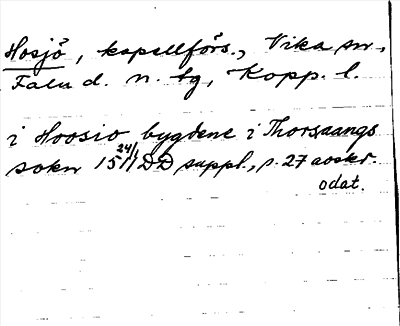 Hosjö, kapellförs., Vika sn,
Falu d. n. tg, Kopp. l.
i Hoosio bygdene i Thorsaangs
sokn 15 24/1 DD suppl., s. 27 avskr.
odat.